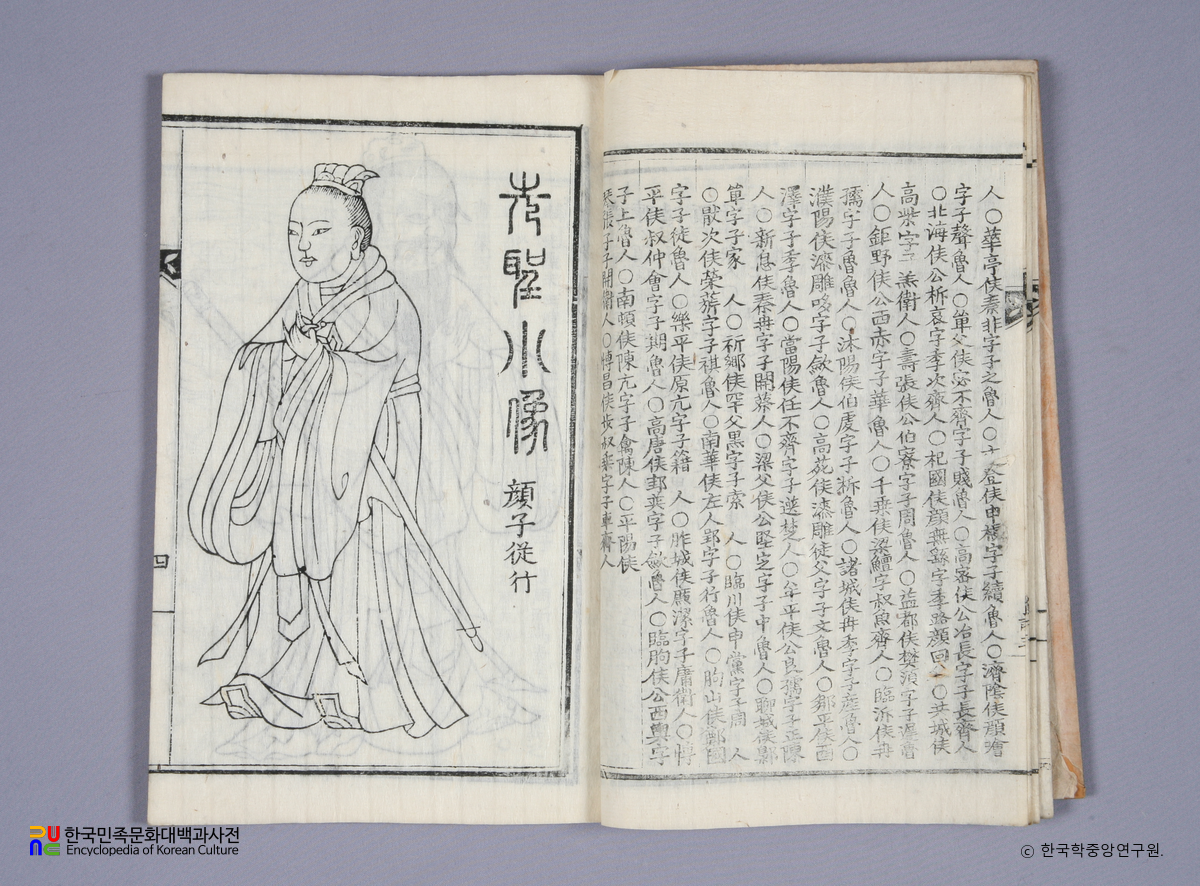 人○華亭侯秦非字子之魯人○文登侯申棖字子續魯人○濟陰侯顔噲
字子聲魯人○單父侯宓不齊字子賤魯人○高密侯公冶長字子長齊人
○北海侯公析哀字季次齊人○杞國侯顔無繇字季路顔回父○共城侯
高柴字子羔衛人○壽張侯公伯寮字子周魯人○益都侯樊須字子遲魯
人○鉅野侯公西赤字子華魯人○千乗侯梁鱣字叔魚齊人○臨沂侯冉
孺字子魯魯人○沐陽侯伯虔字子析魯人○諸城侯冉季字子産魯人○
濮陽侯漆雕哆字子斂魯人○高苑侯漆雕徒父字子文魯人○鄒平侯商
澤字子季魯人○當陽侯任不齊字子選楚人○牟平侯公良孺字子正陳
人○新息侯秦冉字子開蔡人○梁父侯公堅定字子中魯人○聊城侯鄡
單字子家 人○祈鄉侯罕父黒字子索 人○臨川侯申黨字子周 人
○厭次侯榮旂字子祺魯人○南華侯左人郢字子行魯人○朐山侯鄭國
字子徒魯人○樂平侯原亢字子籍 人○胙城侯廉潔字子庸衛人○博
平侯叔仲會字子期魯人○高唐侯邽巽字子斂魯人○臨朐侯公西輿字
子上魯人○南頓侯陳亢字子禽陳人○平陽侯
琴張字子開衛人○博昌侯步叔乗字子車齊人
先聖小像
顔子從行
四
한국민족문화대백과사전
Encyclopedia of Korean Culture
ⓒ 한국학중앙연구원.